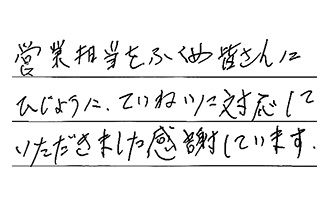 営業担当をふくめ皆さんに
ひじょうに、ていねいに対応して
いただきました感謝しています.